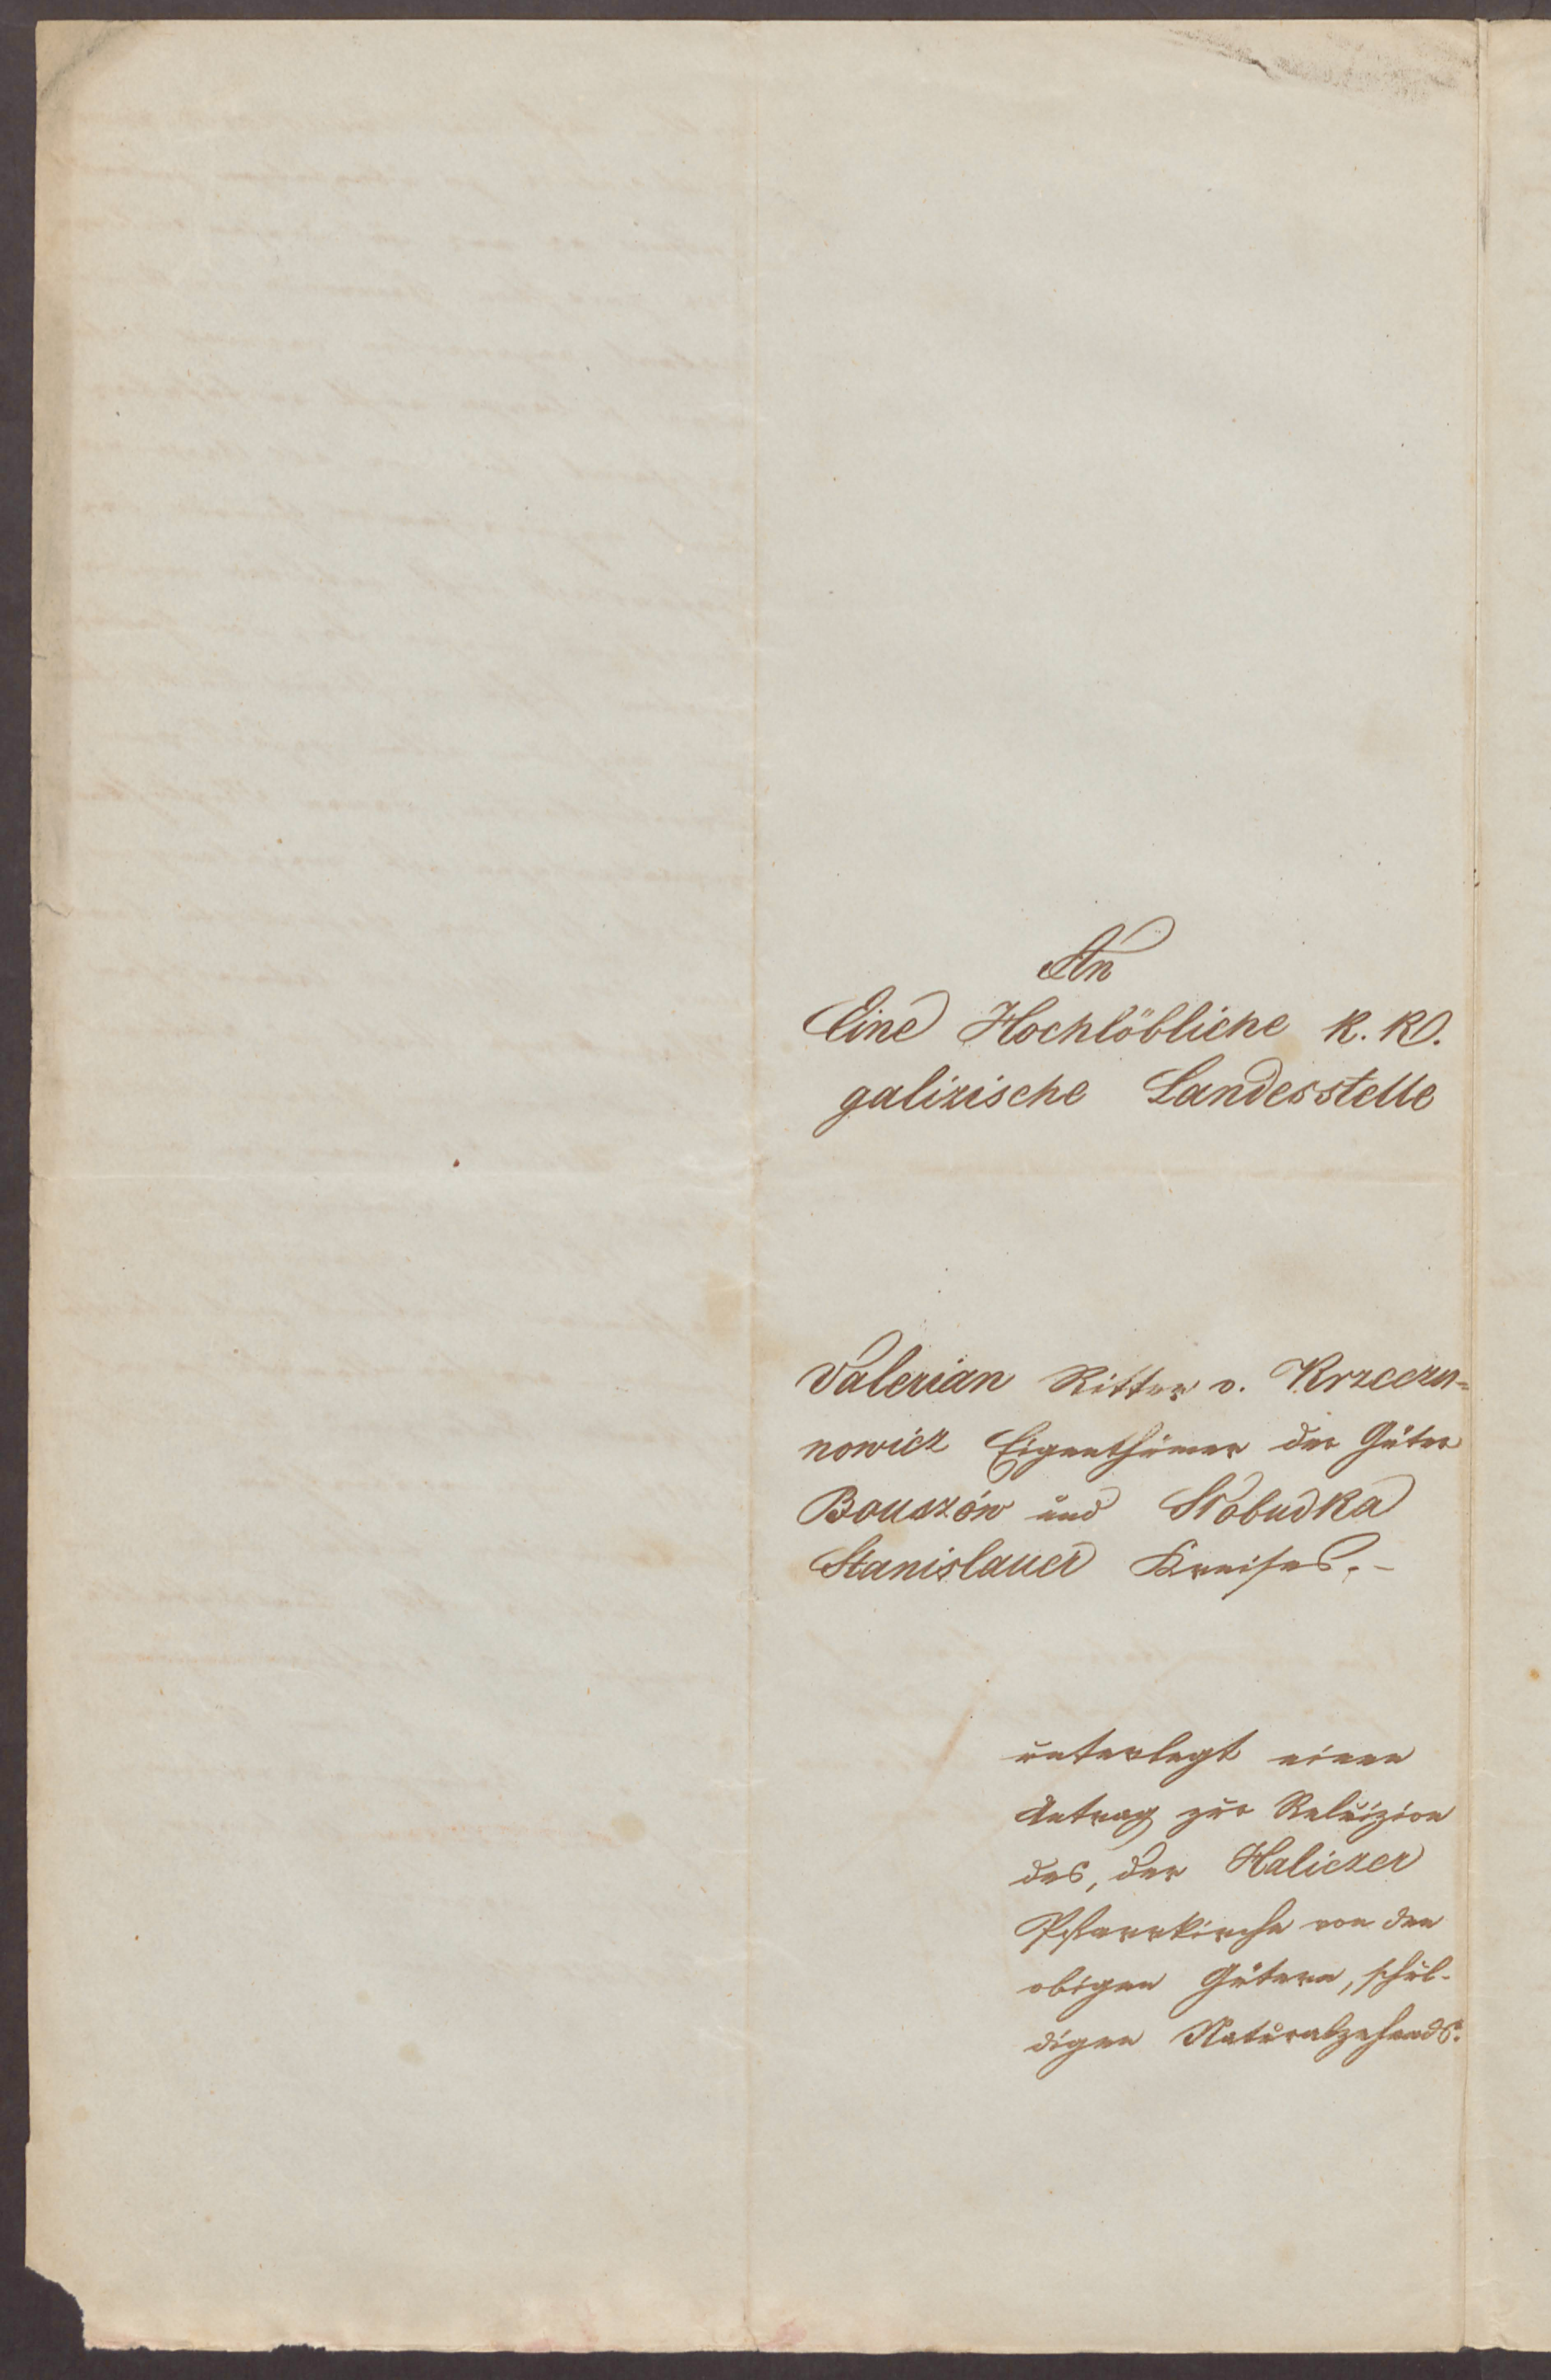 An
Eine Hochlöbliche k. k.
galizische Landesstelle
Valerian Ritter v. Krzeczu=
nowicz Eigenthümer der Güter
Bouszów und Słobudka
Stanislauer Kreises.-
unterlegt einen
Antrag zur Reluizion
des, der Haliczer
Pfarrkirche von den
obigen Gütern, schul-
digen Naturalzehends.